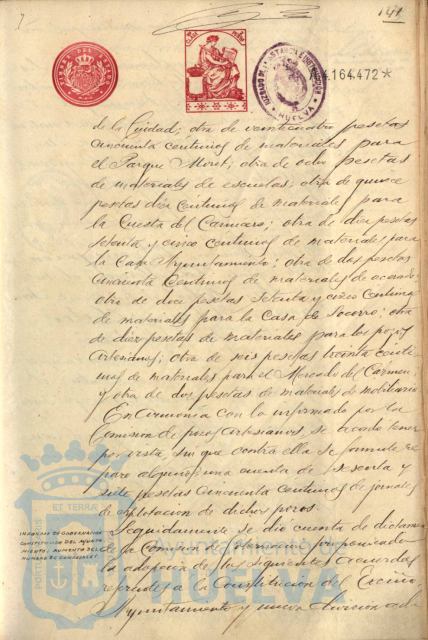 141
TIMBRE DEL ESTADO
JUZGADO DE 1ª INSTANCIA E INSTRUCCION
HUELVA
A.4.164.472*
de la Ciudad; otra de veinticuatro pesetas
cincuenta centimos de materiales para
el Parque Moret; otra de ocho pesetas
de materiales de escuelas; otra de quince
pesetas diez centimos de materiales para
la Cuesta del Carnicero; otra de diez pesetas
setenta y cinco centimos de materiales para
la Casa Ayuntamiento; otra de dos pesetas
cincuenta centimos de materiales de acerado;
otra de doce pesetas setenta y cinco centimos
de materiales para la Casa de Socorro; otra
de diez pesetas de materiales para los pozos
Artesianos; otra de seis pesetas treinta centi-
mos de materiales para el Mercado del Carmen
y otra de dos pesetas de materiales de mobiliario.
En armonia con lo informado por la
Comision de pozos Artesianos, se acordó tener
por vista, sin que contra ella se formule re-
paro alguno, una cuenta de sesenta y
siete pesetas cincuenta centimos de jornales
de esplotacion de dichos pozos.
Seguidamente se dió cuenta de dictamen
de la Comision de Gobernacion proponiendo
la adopcion de los siguientes acuerdos
referentes a la Constitucion del Excmo.
Ayuntamiento y nueva division de la
INFORME DE GOBERNACION
CONSTITUCION DEL AYUNTA
MIENTO, AUMENTO DEL
NUMERO DE CONCEJALES
Ayuntamiento de
HUELVA